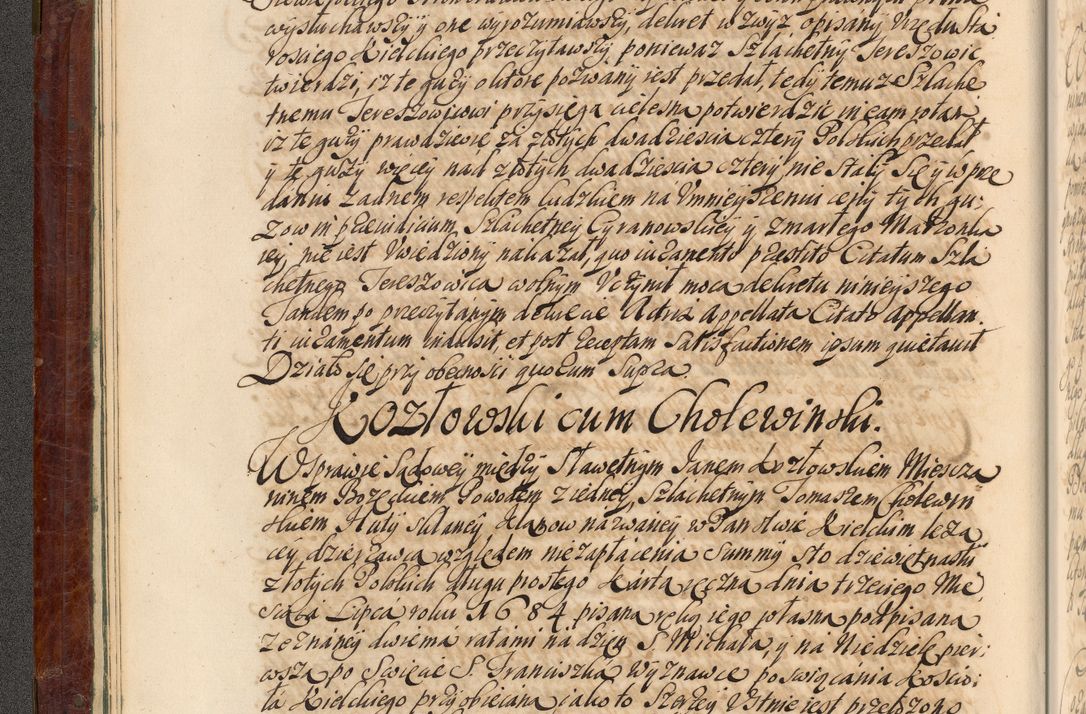 wysłuchawszy y one wyrozumiawszy, dekret w zwyż opisany Urzędu Sta
rosciego Kielckiego przeczytawszy, poniewaz Szlachetny Tereszowic
twierdzi, iz te guzy o ktore pozwany iest przedał, tedy temuze Szlache
tnemu Tereszowicowi przysięgą cielesną potwierdzic
iz te guzy prawdziwie za złotych dwadziescia cztery Polskich przedał
y te guzy więcey nad złotych dwadziescia cztery nie stały się y w prze
daniu zadnem respektem ludzkiem na Umnieyszeniu ceny tych gu:
zow in præiudicium Szlachetney Cyranowskiey y zmarłego Małzonka
iey, nie iest Uwiedziony nakazał, quo iuramento præstito Citatum Szla
chetnego Tereszowica wolnym Uczynił mocą dekretu ninieyszego
Tandem po przeczytanym dekrecie Actrix Appellata Citato Appellan
ti iuramentum indulsit, et post receptam Satisfactionem ipsum quietavit
Działo się przy obecności quorum supra.
Kozłowski cum Cholewinski.
W sprawie Sądowey między Sławetnym Janem Kozłowskiem Miescza
ninem Bozęckiem Powodem z iedney, Szlachetnym Tomaszem Cholewin
skiem Huty szklaney nazwaney w Panstwie Kielckim leżą
cey dzierzawcą względem niezapłacenia Summy sto dziewiętnastu
złotych Polskich długu prostego Kartą ręczną dnia trzeciego Mie
siąca Lipca roku 1684 pisaną ręką iego własną podpisaną
zeznaney dwiema ratami na dzien S. Michała, y na Niedzielę pier:
wszą po Swięcie S. Franciszka Wyznawce poswiącania Koscio:
ła Kielckiego przyobiecaną iako to Szerzey Ustnie iest przełozono